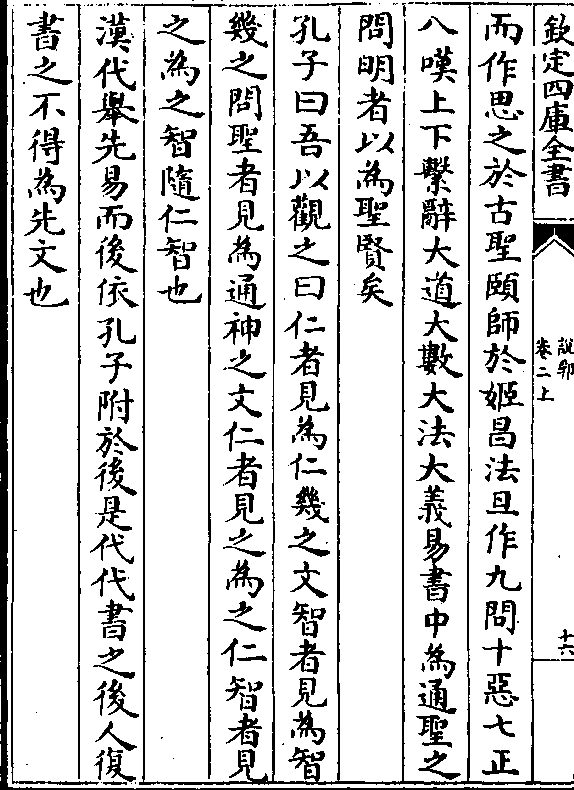 欽定四庫全書
說郛
卷二上
十六
而作思之於古聖頤師於姬昌法旦作九問十惡七正
八嘆上下繫辭大道大數大法大義易書中為通聖之
問明者以為聖賢矣
孔子曰吾以觀之曰仁者見為仁幾之文智者見為智
幾之問聖者見為通神之文仁者見之為之仁智者見
之為之智隨仁智也
漢代舉先易而後依孔子附於後是代代書之後人復
書之不得為先文也